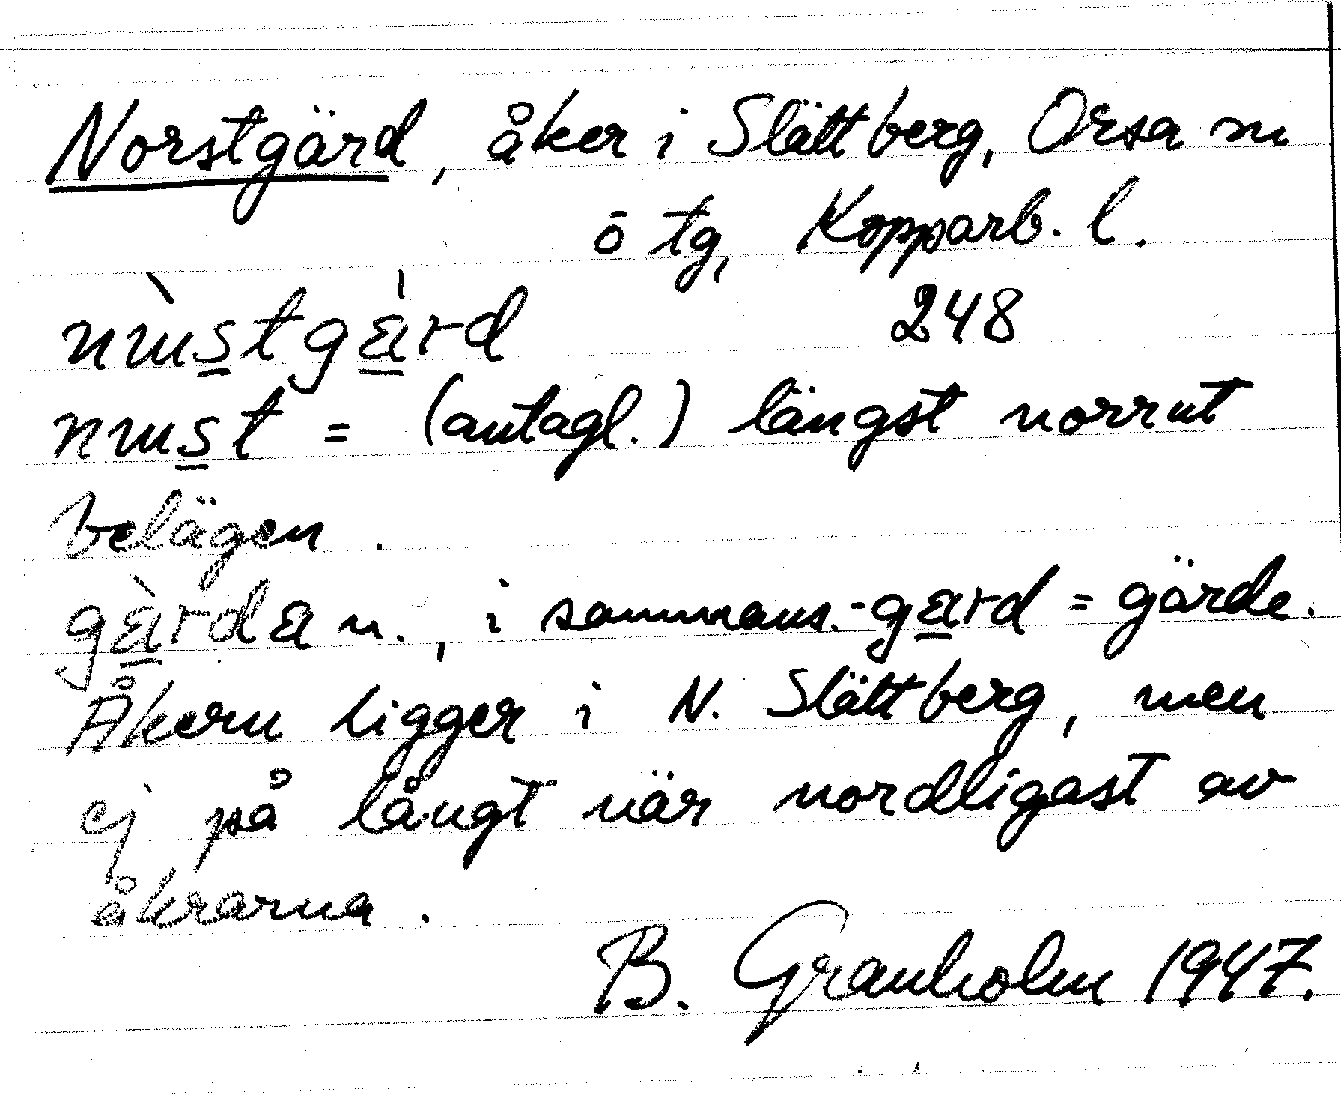 Norstgärd, åker i Slättberg, Orsa sn
ö tg, Kopparb. l.
nɯs̲tga̲rd 248
nɯs̲t = (antagl.) längst norrut
belägen.
ga̲rda n., i sammans. -ga̲rd = gärde.
Åkern ligger i N. Slättberg, men
ej på långt när nordligast av
åkrarna.
B. Granholm 1947.